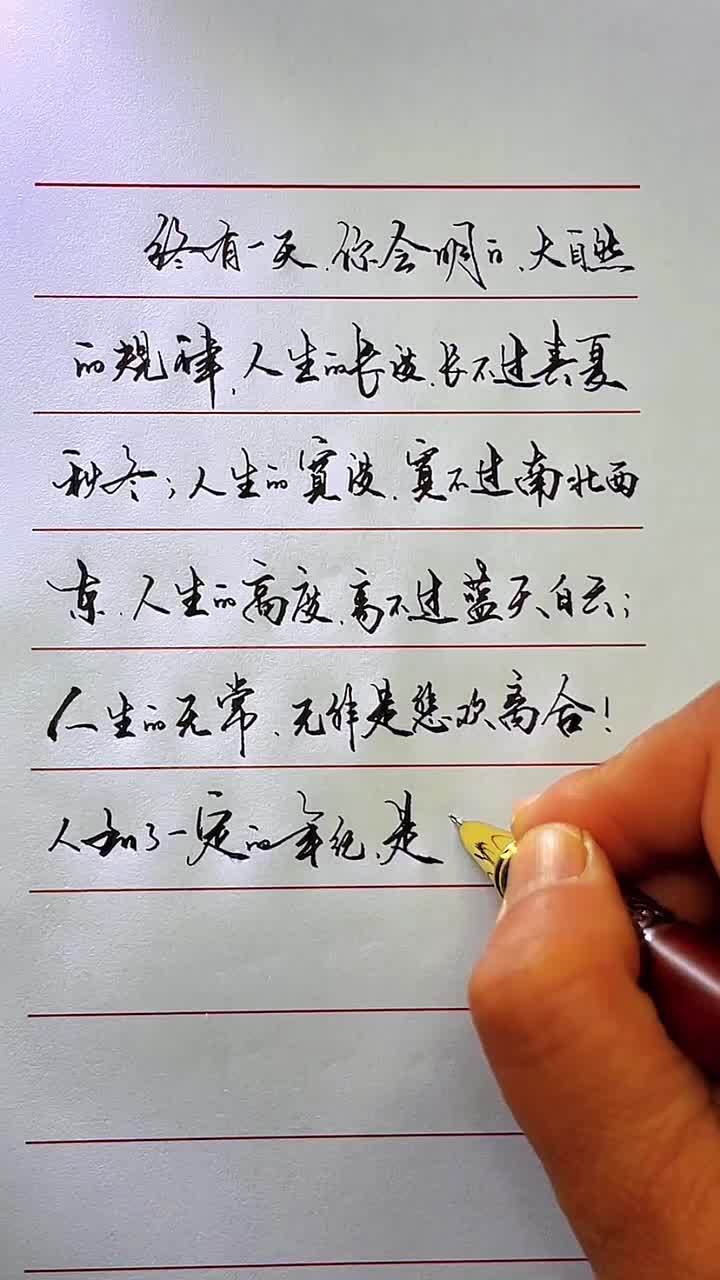 终有一天，你会明白，大自然
的规律，人生的长度，长不过春夏
秋冬；人生的宽度，宽不过南北西
东，人生的高度，高不过蓝天白云；
人生的无常，无非是悲欢离合！
人到了一定的年纪，是